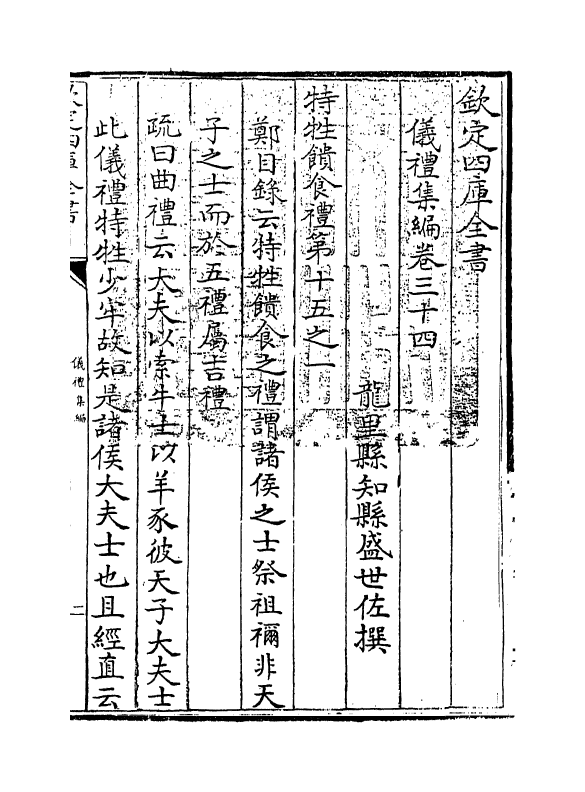 欽定四庫全書
儀禮集編卷三十四
龍里縣知縣盛世佐撰
特牲饋食禮第十五之一
鄭目錄云特牲饋食之禮謂諸侯之士祭祖禰非天
子之士而於五禮屬吉禮
疏曰曲禮云大夫以索牛士以羊豕彼天子大夫士
此儀禮特牲少牢故知是諸侯大夫士也且經直云
欽定四庫全書
儀禮集編